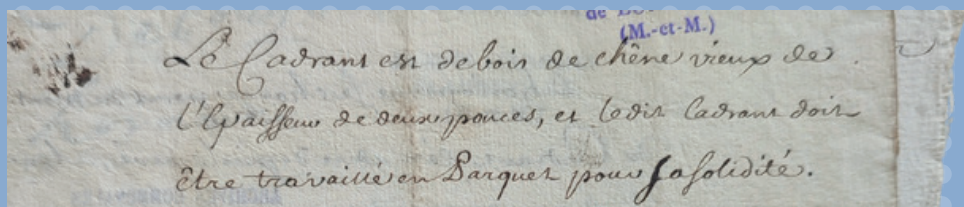 (M.-et-M.)
Le Cadrant est de bois de chêne vieux de
l'Epaisseur de deux pouces, et ledit Cadrant doit
être travaillé en Parquet pour sa solidité.